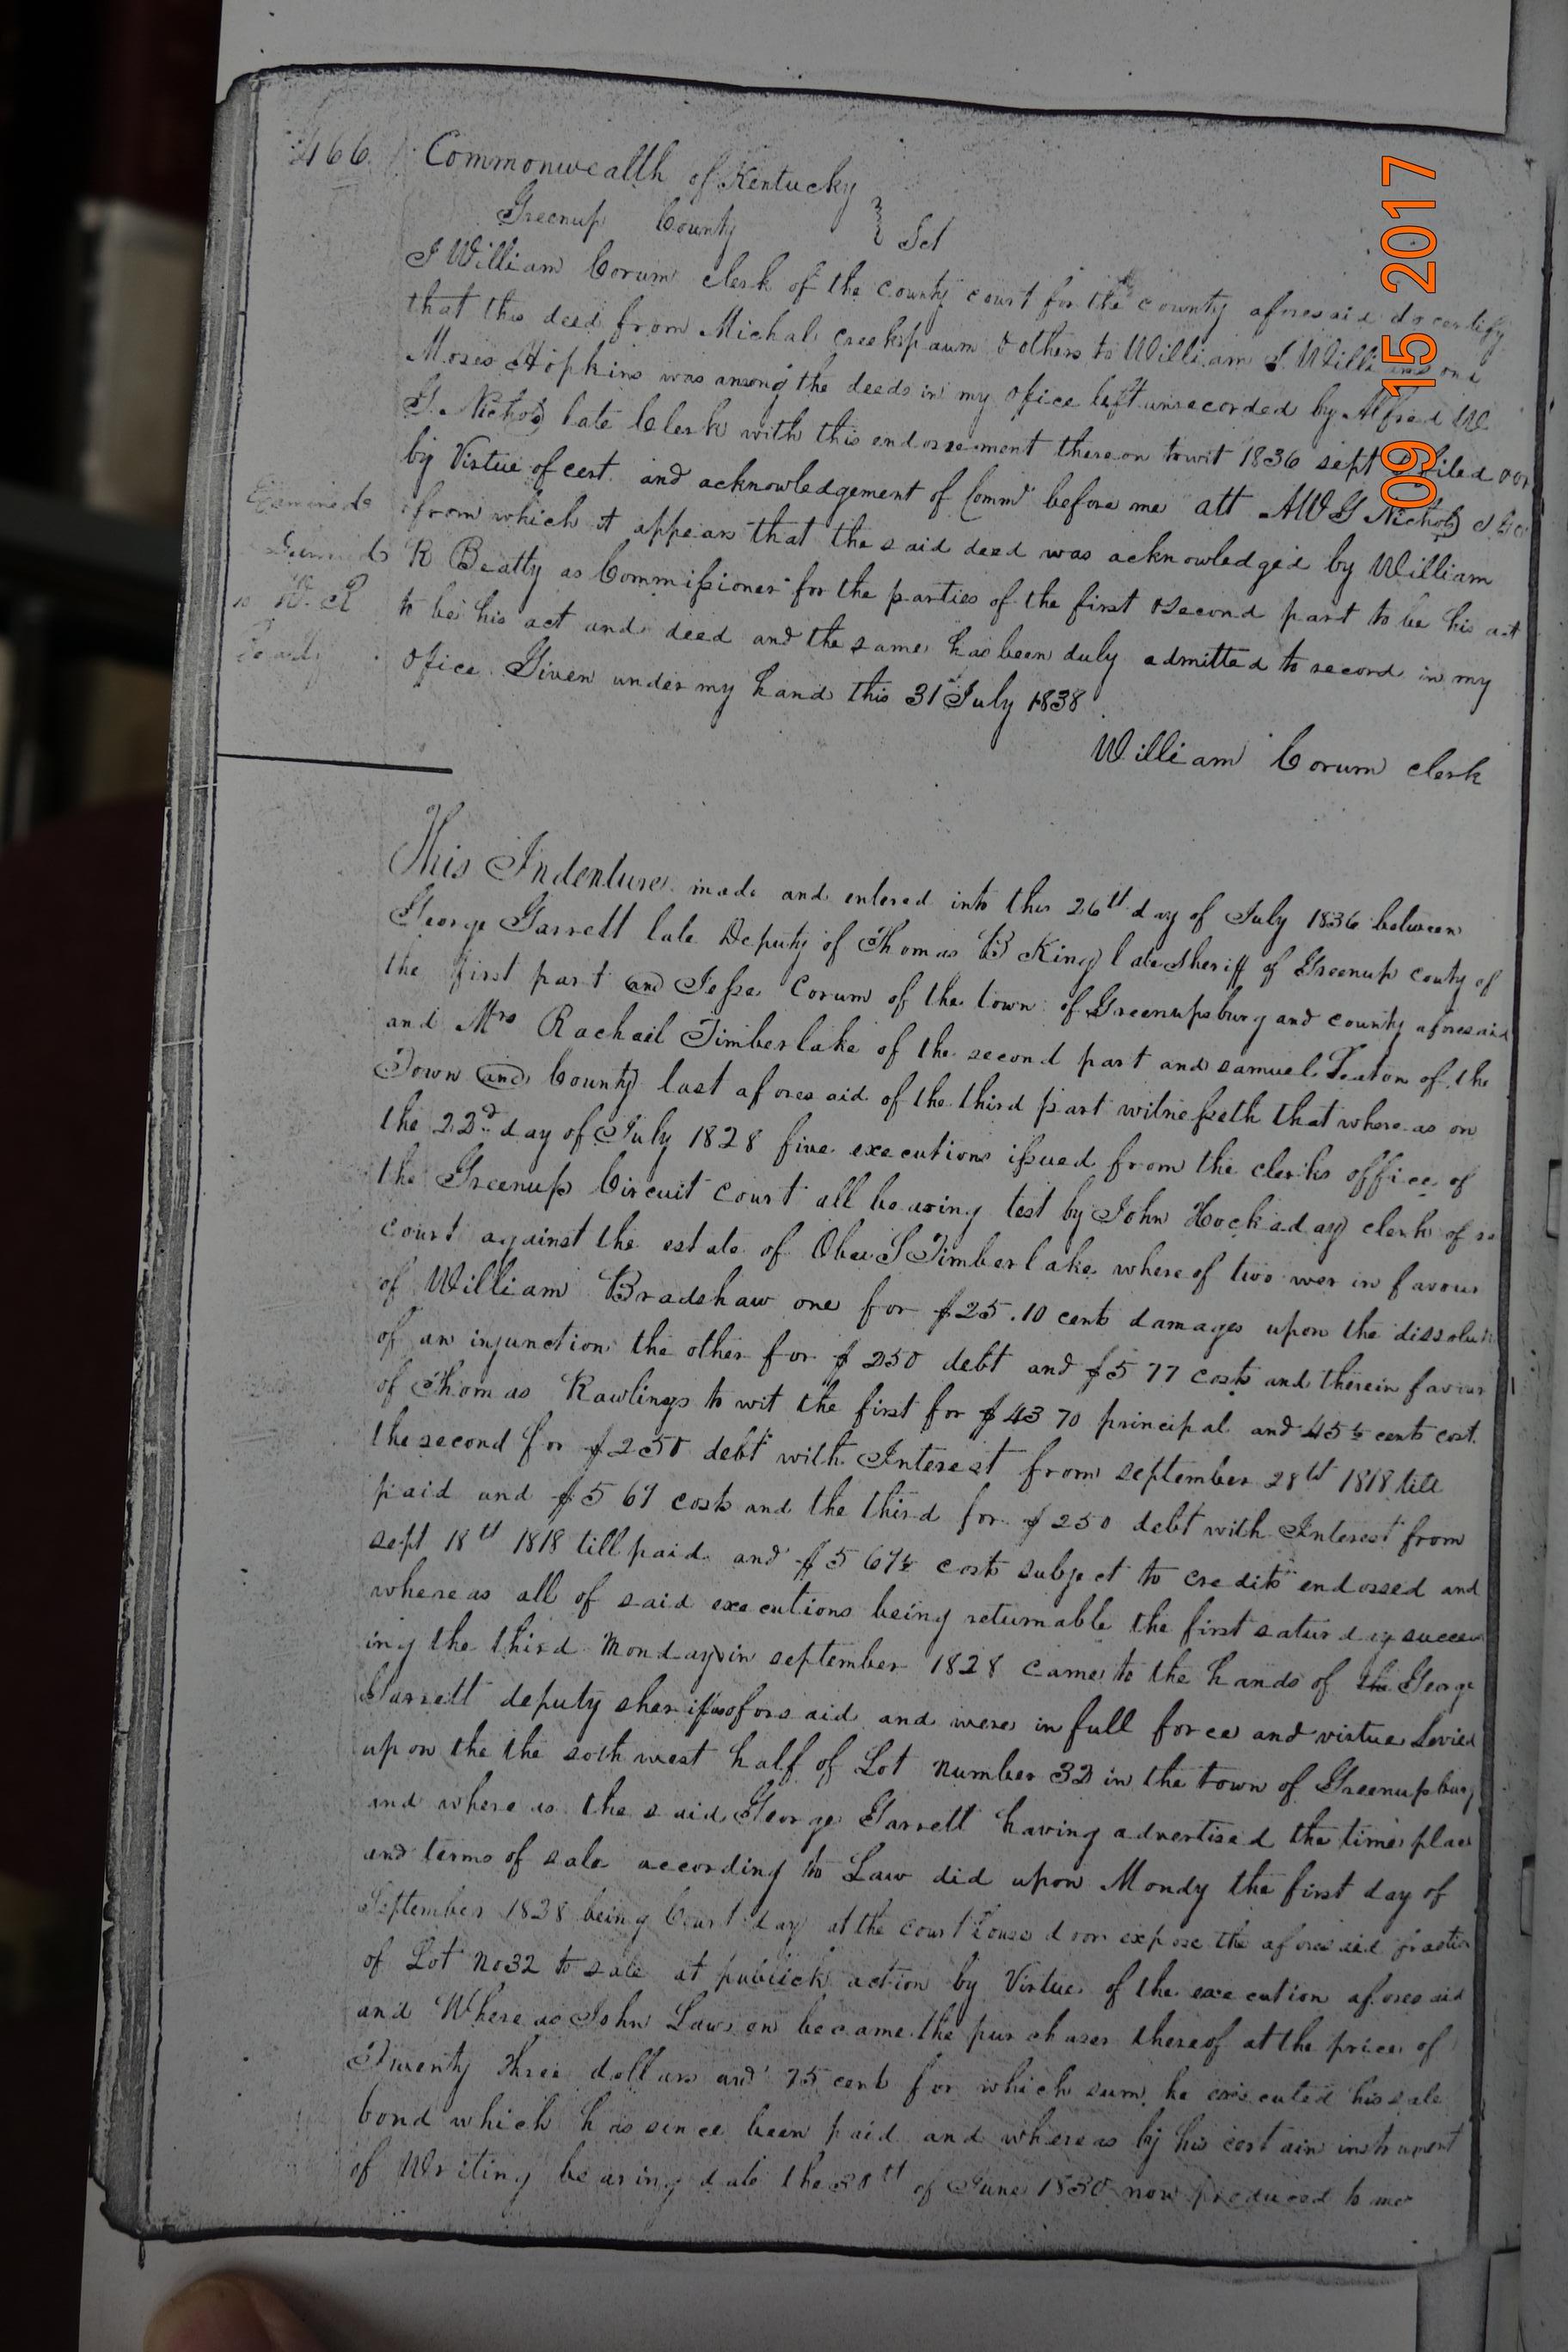 466.
Commonwealth of Kentucky
Greenup County } Sct
I William Corum clerk of the county court for the county aforesaid do certify
that this deed from Michal creekspaum & others to William I. Williams and
Moses Hopkins was among the deeds in my ofice left unrecorded by Alfred W
G. Nichols late Clerk with this endorsement thereon towit 1836 sept filed
by Virtue of cert. and acknowledgement of Comm before me att AWG Nichols
from which it appears that the said deed was acknowledged by William
R Beatty as Commissioner for the parties of the first & second part to be his act
to be his act and deed and the same has been duly admitted to record in my
ofice Given under my hand this 31 July 1838
William Corum clerk
Examined
W. R
This Indenture made and entered into this 26th day of July 1836 between
George Garrett late Deputy of Thomas B King late Sheriff of Greenup couty of
the first part and Jesse Corum of the town of Greenupsburg and county aforesaid
and Mrs Rachael Timberlake of the second part and samuel Seaton of the
Town and County last aforesaid of the third part witnesseth that where as on
the 22nd day of July 1828 five executions issued from the clerks office of
the Greenup Circuit court all bearing test by John Hockaday clerk of
court against the estate of Obed S Timberlake where of two wer in favour
of William Bradshaw one for $25.10 cents damages upon the dissolut
of an injunction the other for $250 debt and $5 77 costs and therein favour
of Thomas Rawlings to wit the first for $43 70 principal and 45½ cents cost.
the second for $250 debt with Interest from september 28th 1818 till
paid and $5 69 costs and the third for $250 debt with Interest from
sept 18th 1818 till paid and $5 69½ costs subject to credits endorsed and
whereas all of said executions being returnable the first saturday succeed
ing the third Monday in september 1828 came to the hands of the George
Garrett deputy sheriff as afors aid and were in full force and virtue Levied
upon the the soth west half of Lot number 32 in the town of Greenupsburg
and where as the said George Garrett having advertised the time place
and terms of sale according to Law did upon Mondy the first day of
September 1828 being Court day at the court house door expose the aforesaid fraction
of Lot No32 to sale at publick action by Virtue of the execution aforesaid
and Where as John Lawson became the purchaser thereof at the price of
Twenty three dollars and 75 cent for which sum he executed his sale
bond which has since been paid and whereas by his certain instrument
of Writing bearing date the 30th of June 1830 now produced to me
09 15 2017